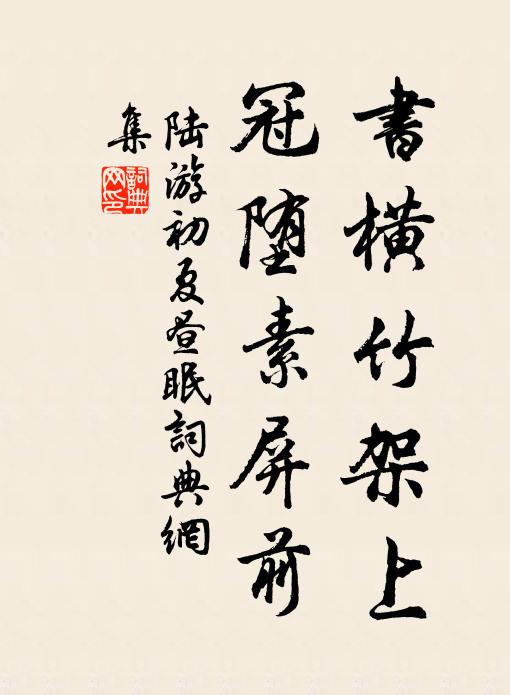 書橫竹架上
冠墮素屏前
陸游初夏晝眠詞典網
集
詞典
网印